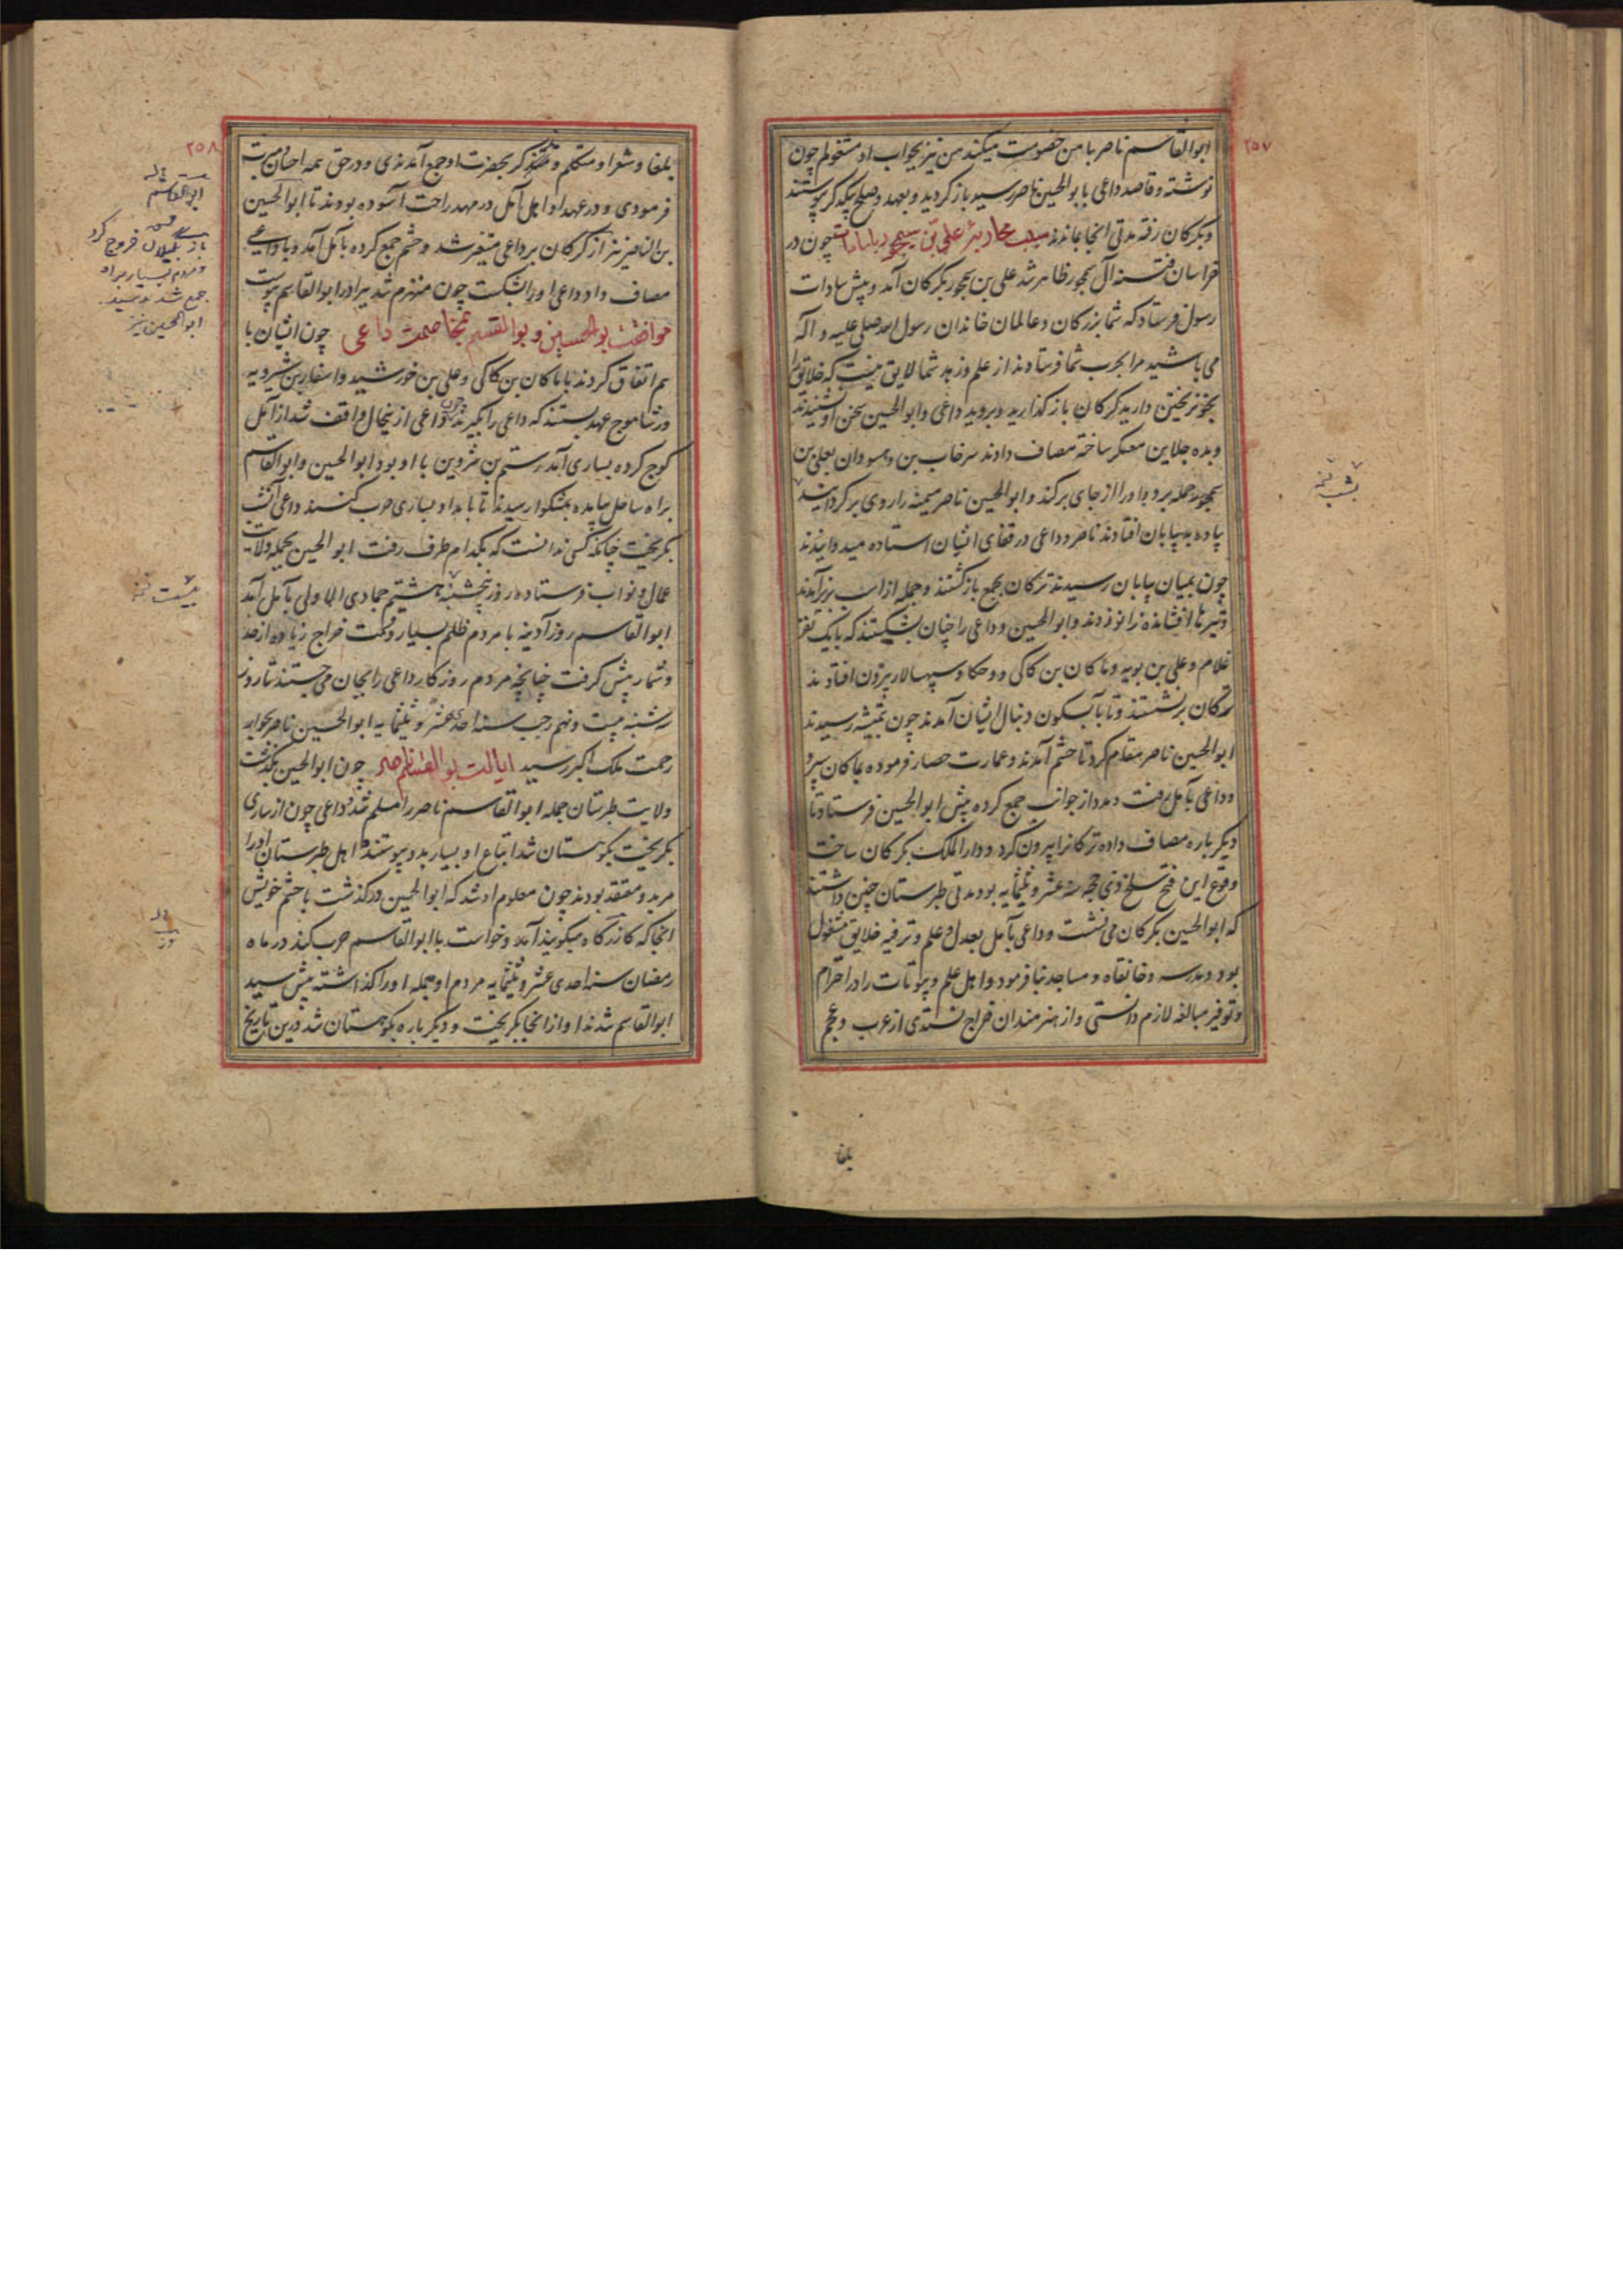 ۲۵۷
ابوالقاسم ناصر با من خصومت میکند من نیز بجواب او مشغولم چون
نوشته و قاصد داعی بابوالحسین ناصر رسید باز گردید و بعهد و صلح یکدیگر پیوستند
و بگرگان رفته مدتی انجا بماندند سبب محاربه علی بن سیمجور با سادات چون در
خراسان فتنه آل سمجور ظاهر شد علی بن سمجور بگرگان آمد و پیش سادات
رسول فرستاد که شما بزرگان و عالمان خاندان رسول الله صلی علیه و آله
می باشید مرا بحرب شما فرستادند از علم و زهد شما لایق نیست که خلایق را
بخونریختن دارید گرگان باز گذارید و بروید داعی و ابوالحسین سخن او نشنیدند
و بده جلاین معسکر ساخته مصاف دادند سرخاب بن وهسودان بعلی بن
سمجور حمله برد و او را از جای برکند و ابوالحسین ناصر میمنه را روی برگردانید
پیاده به بیابان افتادند ناصر و داعی در قفای ایشان استاده میدوانیدند
چون بمیان بیابان رسیدند ترکان بجمع بازگشتند و جمله از اسب بزیر آمدند
و تیرها افشانده زانو زدند و ابوالحسین و داعی را چنان بشکستند که با یک نفر
غلام و علی بن بویه و ماکان بن کاکی و دو حکا و سپهسالار بیرون افتادند
ترکان برنشستند و تا بآبسکون دنبال ایشان آمدند چون بتمیشه رسیدند
ابوالحسین ناصر مقام کرد تا حشم آمدند و عمارت حصار فرموده بماکان سپرد
و داعی بآمل رفت و مدد از جوانب جمع کرده پیش ابوالحسین فرستاد تا
دیگر باره مصاف داده ترکانرا بیرون کرد و دارالملک بگرگان ساخت
وقوع این فتح سلخ ذی حجه سنه عشر و ثلثمایه بود و مدتی طبرستان چنین داشتند
که ابوالحسین بگرگان می نشست و داعی بآمل بعدل و علم و ترفیه خلایق مشغول
بود و مدرسه و خانقاه و مساجد بنا فرمود و اهل علم و بیوتات را در احترام
و توقیر مبالغه لازم دانستی و از هنرمندان خراج نستدی از عرب و عجم
بلغا
۲۵۸
بلغا و شعرا و متکلم و مذکر بحضرت او جمع آمدندی و در حق همه احسان
فرمودی و در عهد او اهل آمل در مهد راحت آسوده بودند تا ابوالحسین
بن الناصر نیز از گرگان بر داعی متغیر شد و حشم جمع کرده بآمل آمد و با داعی
مصاف داد داعی او را بشکست چون منهزم شد ببرادر ابوالقاسم پیوست
موافقت بوالحسین و بوالقسم بمخاصمت داعی چون ایشان با
هم اتفاق کردند با ماکان بن کاکی و علی بن خورشید و اسفار بن شیرویه
ورشاموج عهد بستند که داعی را بگیرند چون داعی ازینحال واقف شد از آمل
کوچ کرده بساری آمد رستم بن شروین با او بود ابوالحسین و ابوالقاسم
براه ساحل بیامده بمشکوار رسیدند تا بامداد بساری حرب کنند داعی آنشب
بگریخت چنانکه کسی ندانست که بکدام طرف رفت ابوالحسین بجمله ولایت
عمال و نواب فرستاده روز پنجشنبه هشتم جمادی الاولی بآمل آمد
ابوالقاسم روز آدینه با مردم ظلم بسیار و گفت خراج زیاده از حد
و شمار پیش گرفت چنانچه مردم روزگار داعی را بجان می جستند تا روز
سه شنبه بیست و نهم رجب سنه احدی عشر و ثلثمایه ابوالحسین ناصر بجوار
رحمت ملک اکبر رسید ایالت بوالقاسم ناصر چون ابوالحسین بگذشت
ولایت طبرستان جمله ابوالقاسم ناصر را مسلم شد و داعی چون از ساری
بگریخت بکوهستان شد اتباع او بسیار بدو پیوستند و اهل طبرستان او را
مرید و معتقد بودند چون معلوم او شد که ابوالحسین درگذشت با حشم خویش
انجا که کازرگاه میگویند آمد و خواست با ابوالقاسم حرب کند در ماه
رمضان سنه احدی عشر و ثلثمایه مردم او جمله او را گذاشته پیش سید
ابوالقاسم شدند او از انجا بگریخت و دیگر باره بکوهستان شد درین تاریخ
ابوالقاسم
باز بگیلان خروج کرد
و مردم بسیار بر او
جمع شدند و سید
ابوالحسین نیز